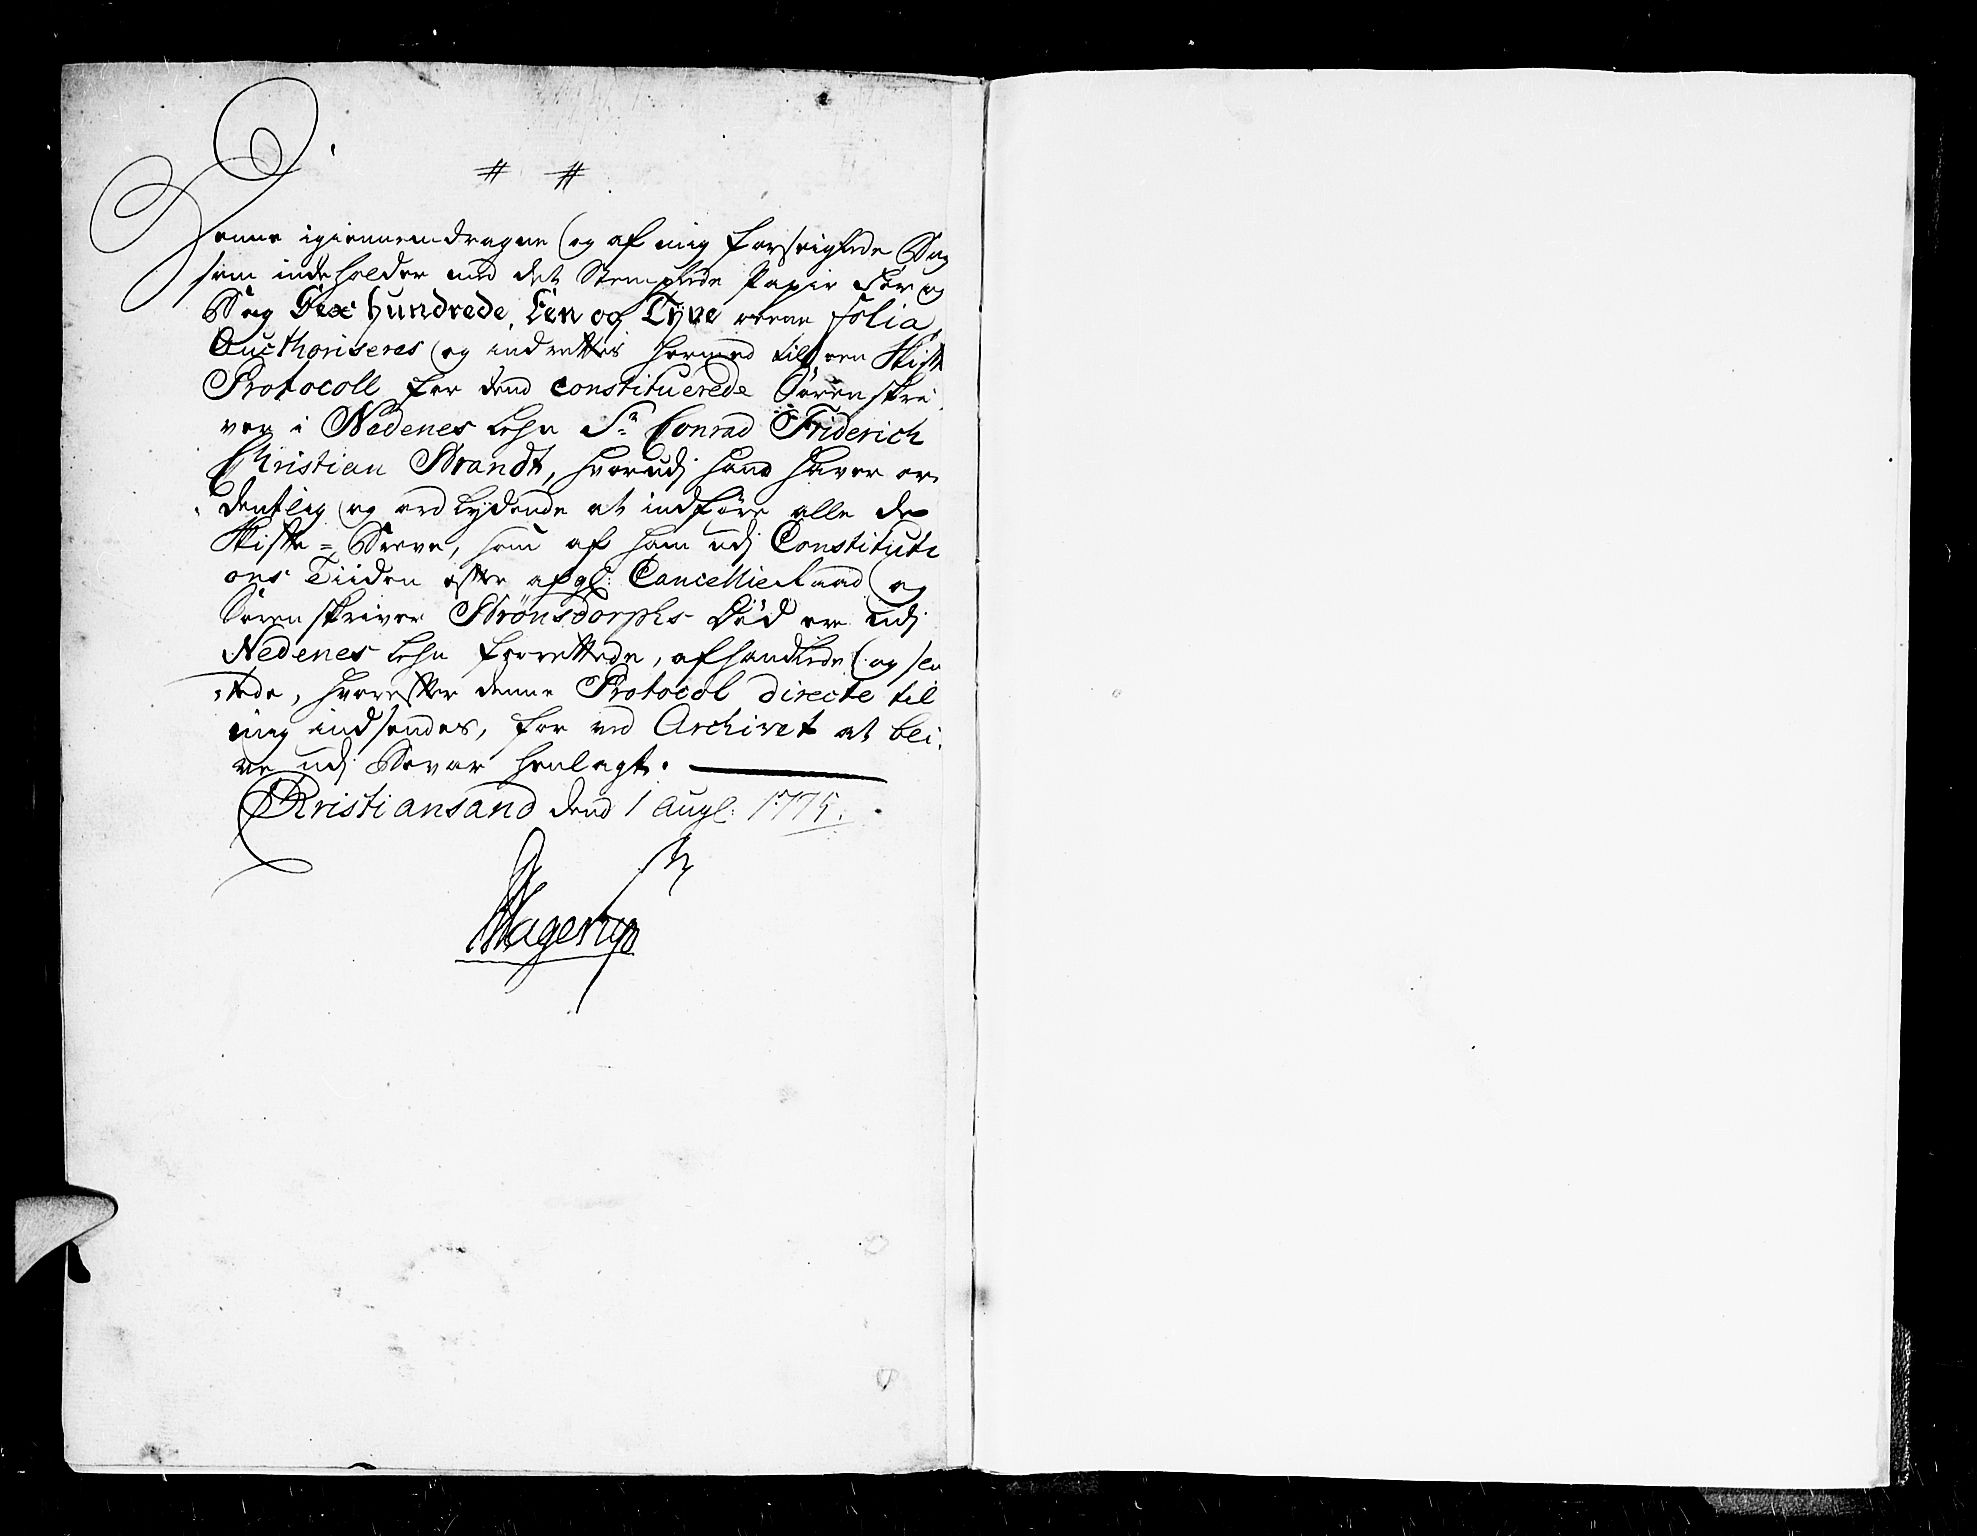 # #
Denne igiennemdragne og af mig forseiglede Bog
som indeholder med det Stemplede Papir for og
bag Sex hundrede, Een og Tyve reene Folia,
Aucthoriseres og indrettes hermed til een Skifte
Protocoll for dend constituerede Sorenskri
ver i Nedenes Lehn Sr. Conrad Friderich
Christian Brandt, hvorudj hand haver or
dentlig og ordlydende at indføre alle de
Skifte=Breve, som af ham udj Constituti
ons Tiiden efter afgl: CancellieRaad og
Sorenskriver Brønsdorphs Død er udj
Nedenes Lehn forrettede, afhandlede og slu
tede, hvorefter denne Protocol directe til
mig indsendes, for ved Archivet at bli,
ve udj Bevar henlagt.
Christiansand dend 1 Augl: 1775.
Hagerup